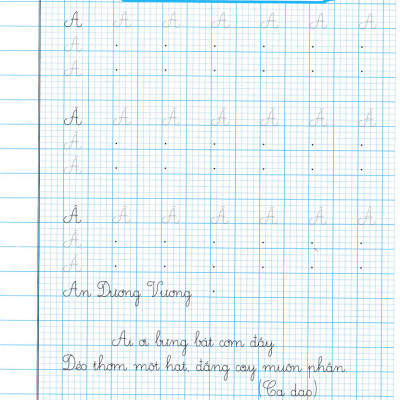 A A A A A A A
A . . . . . .
A . . . . . .
Ă Ă Ă Ă Ă Ă Ă
Ă . . . . . .
Ă . . . . . .
Â Â Â Â Â Â Â
Â . . . . . .
Â . . . . . .
An Dương Vương .
Ai ơi bưng bát cơm đầy
Dẻo thơm một hạt, đắng cay muôn phần
(Ca dao)